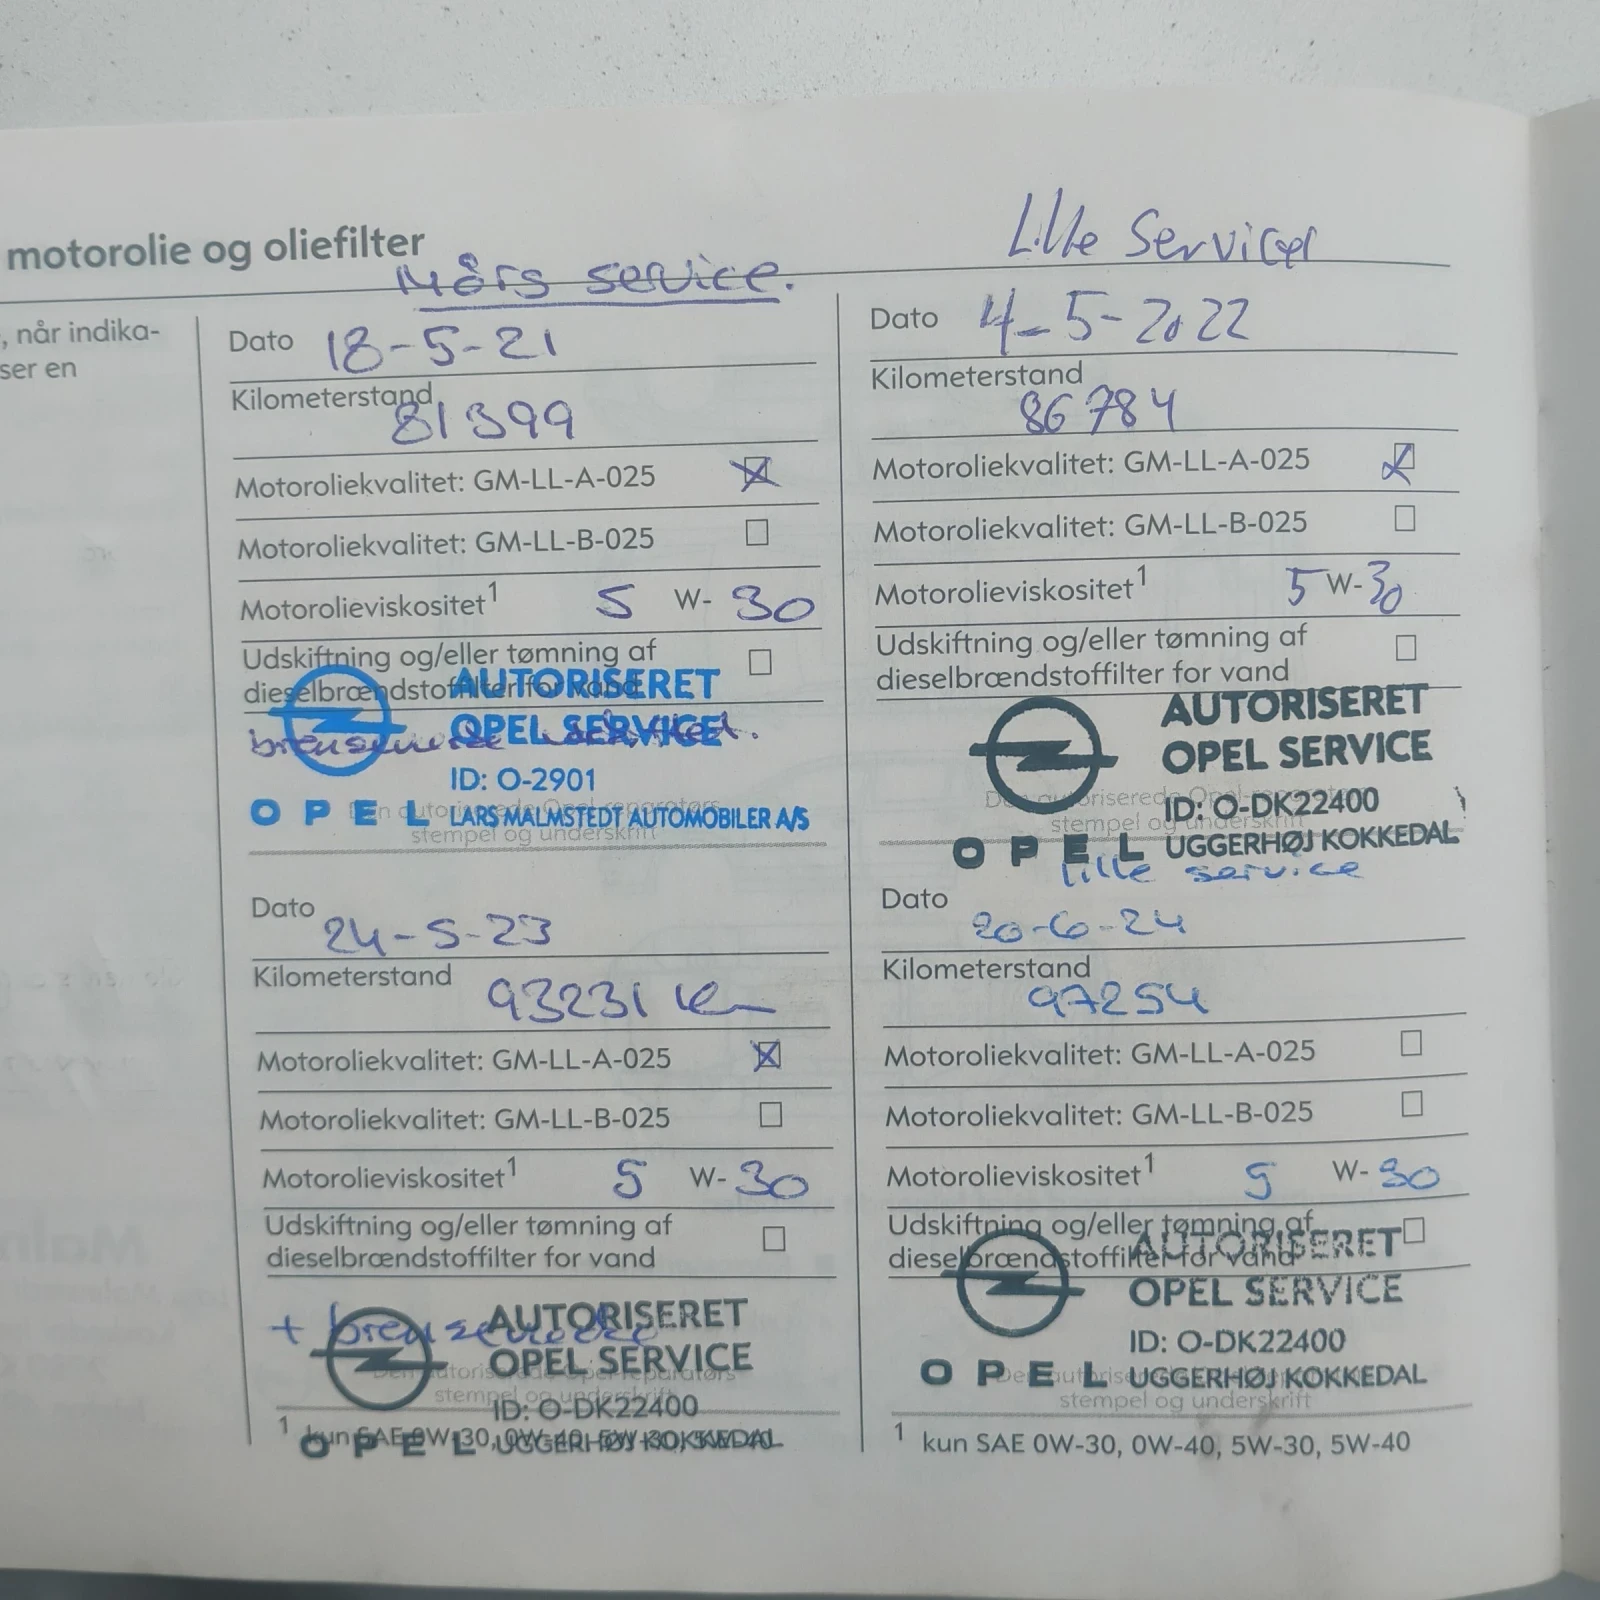 motorolie og oliefilter
Lille Service
års service.
, når indika-
ser en
Dato 18-5-21
Kilometerstand
81399
Motoroliekvalitet: GM-LL-A-025
Motoroliekvalitet: GM-LL-B-025
Motorolieviskositet¹ 5 W- 30
Udskiftning og/eller tømning af
dieselbrændstoffilter for vand
AUTORISERET
OPEL SERVICE
ID: O-2901
OPEL LARS MALMSTEDT AUTOMOBILER A/S
Den autoriserede Opel-reparatørs
stempel og underskrift
Dato 4-5-2022
Kilometerstand
86784
Motoroliekvalitet: GM-LL-A-025
Motoroliekvalitet: GM-LL-B-025
Motorolieviskositet¹ 5 W-30
Udskiftning og/eller tømning af
dieselbrændstoffilter for vand
AUTORISERET
OPEL SERVICE
Den autoriserede Opel-reparatørs
ID: O-DK22400
stempel og underskrift
OPEL UGGERHØJ KOKKEDAL
Dato 24-5-23
Kilometerstand
93231 km
Motoroliekvalitet: GM-LL-A-025
Motoroliekvalitet: GM-LL-B-025
Motorolieviskositet¹ 5 W- 30
Udskiftning og/eller tømning af
dieselbrændstoffilter for vand
+ bremsevæske
AUTORISERET
OPEL SERVICE
Den autoriserede Opel-reparatørs
stempel og underskrift
ID: O-DK22400
OPEL UGGERHØJ KOKKEDAL
¹ kun SAE 0W-30, 0W-40, 5W-30, 5W-40
lille service
Dato 20-6-24
Kilometerstand
97254
Motoroliekvalitet: GM-LL-A-025
Motoroliekvalitet: GM-LL-B-025
Motorolieviskositet¹ 5 W- 30
Udskiftning og/eller tømning af
dieselbrændstoffilter for vand
AUTORISERET
OPEL SERVICE
ID: O-DK22400
OPEL UGGERHØJ KOKKEDAL
stempel og underskrift
¹ kun SAE 0W-30, 0W-40, 5W-30, 5W-40